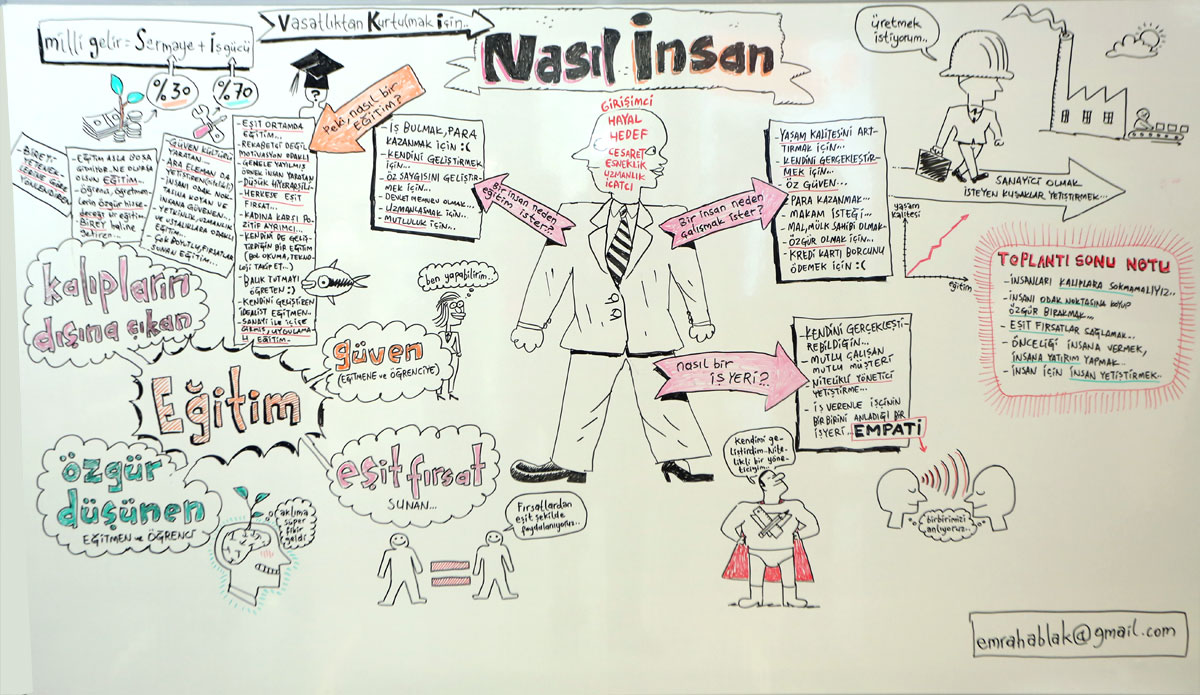 milli gelir = Sermaye + İşgücü
%30
%70
Vasatlıktan Kurtulmak için..
Nasıl İnsan
?
Peki, nasıl bir
EĞİTİM?
BİREYİ
YETENEK-
LERİNE GÖRE
YÖNLENDİREN
- EĞİTİM ASLA BOŞA
GİTMİYOR. NE OLURSA
OLSUN EĞİTİM...
- Öğrenci, öğretmen-
lerin özgür hisse-
deceği bir eğitim.
BİREY haline
getiren...
- GÜVEN KÜLTÜRÜ
YARATAN...
- ARA ELEMAN DA
YETİŞTİREN
İNSANI ODAK NOK-
TASINA KOYAN VE
İNSANA GÜVENEN...
- YETKİNLİK, UZMANLIK
VE USTALIKLARA ODAKLI
EĞİTİM...
- ÇOK BOYUTLU, FIRSATLAR
SUNAN EĞİTİM...
- EŞİT ORTAMDA
EĞİTİM...
- REKABETÇİ DEĞİL
MOTİVASYON ODAKLI
- GENELE YAYILMIŞ
ÖRNEK İNSAN YARATAN
- DÜŞÜK HİYERARŞİLİ-
- HERKESE EŞİT
FIRSAT...
- KADINA KARŞI PO-
ZİTİF AYRIMCI...
- KENDİM DE GELİŞ-
TİRDİĞİN BİR EĞİTİM
(BOL OKUMA, TEKNO-
LOJİ TAKİP ET...)
- BALIK TUTMAYI
ÖĞRETEN :)
- KENDİNİ GELİŞTİREN
İDEALİST EĞİTMEN..
- SANAYİ İLE İÇİÇE
GİRMİŞ, UYGULAMA-
LI EĞİTİM-
- İŞ BULMAK, PARA
KAZANMAK İÇİN :(
- KENDİNİ GELİŞTİRMEK
İÇİN...
- ÖZ SAYGISINI GELİŞTİR-
MEK İÇİN...
- DEVLET MEMURU OLMAK...
- UZMANLAŞMAK İÇİN..
- MUTLULUK İÇİN...
Bir insan neden
eğitim ister?
GİRİŞİMCİ
HAYAL
HEDEF
CESARET
ESNEKLİK
UZMANLIK
İCATÇI
Bir insan neden
çalışmak ister?
- YAŞAM KALİTESİNİ ART-
TIRMAK İÇİN...
- KENDİNİ GERÇEKLEŞTİR-
MEK İÇİN...
- ÖZ GÜVEN...
- PARA KAZANMAK...
- MAKAM İSTEĞİ...
- MAL, MÜLK SAHİBİ OLMAK-
- ÖZGÜR OLMAK İÇİN...
- KREDİ KARTI BORCUNU
ÖDEMEK İÇİN :(
üretmek
istiyorum..
SANAYİCİ OLMAK
İSTEYEN KUŞAKLAR YETİŞTİRMEK...
yaşam
kalitesi
eğitim
TOPLANTI SONU NOTU
- İNSANLARI KALIPLARA SOKMAMALIYIZ..
- İNSANI ODAK NOKTASINA KOYUP
ÖZGÜR BIRAKMAK...
- EŞİT FIRSATLAR SAĞLAMAK...
- ÖNCELİĞİ İNSANA VERMEK,
İNSANA YATIRIM YAPMAK...
- İNSAN İÇİN İNSAN YETİŞTİRMEK..
nasıl bir
İŞYERİ?
- KENDİNİ GERÇEKLEŞTİ-
REBİLDİĞİN...
- MUTLU ÇALIŞAN
MUTLU MÜŞTERİ
- NİTELİKLİ YÖNETİCİ
YETİŞTİRME...
- İŞVERENLE İŞÇİNİN
BİRBİRİNİ ANLADIĞI BİR
İŞYERİ... EMPATİ
birbirimizi
anlıyoruz..
Kendimi ge-
liştirdim. Nite-
likli bir yöne-
ticiyim...
kalıpların
dışına çıkan
ben yapabilirim..
güven
(EĞİTMENE ve ÖĞRENCİYE)
Eğitim
özgür
düşünen
EĞİTMEN ve ÖĞRENCİ
aklıma
süper
fikir
geldi
eşit fırsat
SUNAN...
Fırsatlardan
eşit şekilde
faydalanıyoruz..
emrahablak@gmail.com